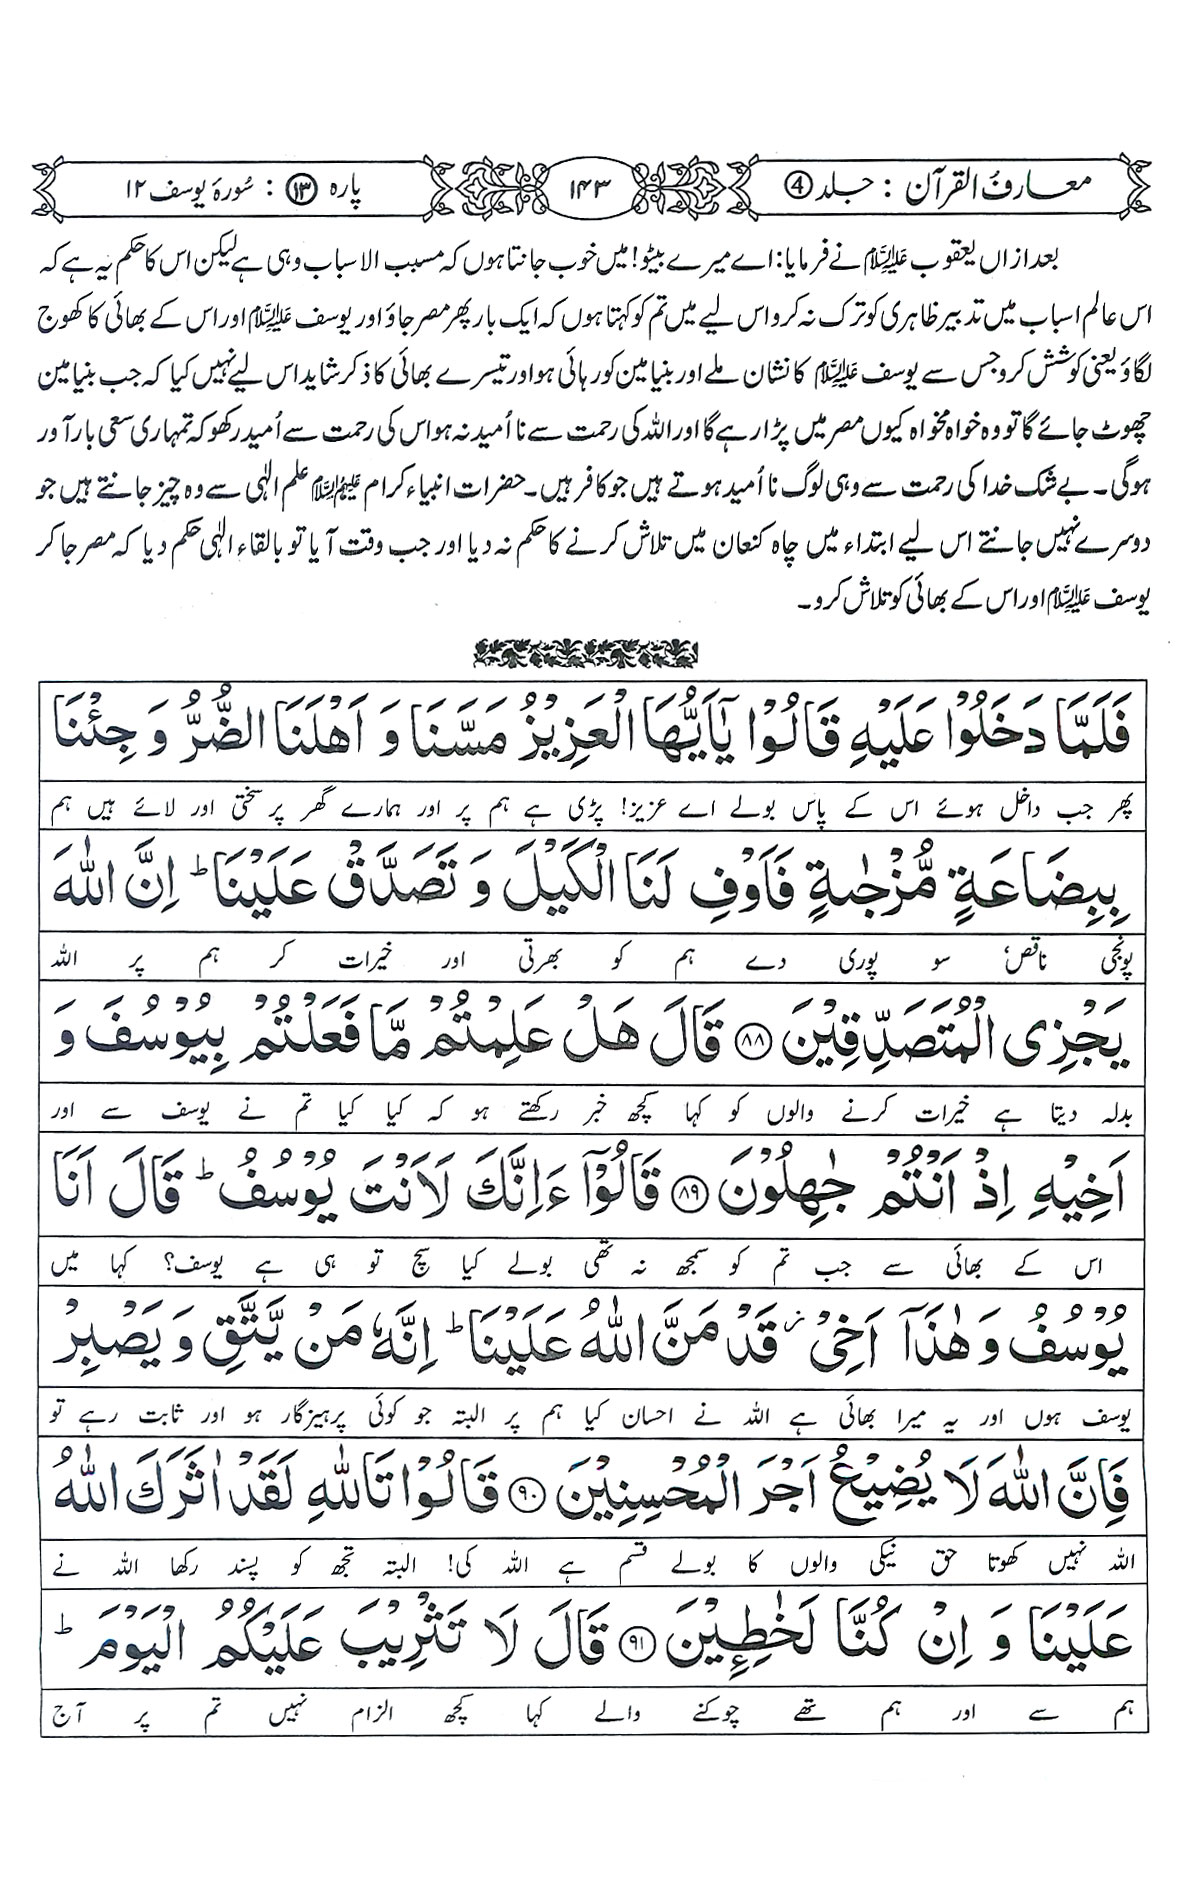 معارفُ القرآن : جلد ④
۱۴۳
پارہ ⑬ : سُورۂ یوسف ۱۲
بعد ازاں یعقوب علیہ السلام نے فرمایا: اے میرے بیٹو! میں خوب جانتا ہوں کہ مسبب الاسباب وہی ہے لیکن اس کا حکم یہ ہے کہ
اس عالم اسباب میں تدبیر ظاہری کو ترک نہ کرو اس لیے میں تم کو کہتا ہوں کہ ایک بار پھر مصر جاؤ اور یوسف علیہ السلام اور اس کے بھائی کا کھوج
لگاؤ یعنی کوشش کرو جس سے یوسف علیہ السلام کا نشان ملے اور بنیامین کو رہائی ہو اور تیسرے بھائی کا ذکر شاید اس لیے نہیں کیا کہ جب بنیامین
چھوٹ جائے گا تو وہ خواہ مخواہ کیوں مصر میں پڑا رہے گا اور اللہ کی رحمت سے نا اُمید نہ ہو اس کی رحمت سے اُمید رکھو کہ تمہاری سعی بار آور
ہوگی۔ بے شک خدا کی رحمت سے وہی لوگ نا اُمید ہوتے ہیں جو کافر ہیں۔ حضرات انبیاء کرام علیہم السلام علم الٰہی سے وہ چیز جانتے ہیں جو
دوسرے نہیں جانتے اس لیے ابتداء میں چاہ کنعان میں تلاش کرنے کا حکم نہ دیا اور جب وقت آیا تو بالقاء الٰہی حکم دیا کہ مصر جا کر
یوسف علیہ السلام اور اس کے بھائی کو تلاش کرو۔
فَلَمَّا دَخَلُوْا عَلَیْهِ قَالُوْا یٰۤاَیُّهَا الْعَزِیْزُ مَسَّنَا وَ اَهْلَنَا الضُّرُّ وَ جِئْنَا
پھر جب داخل ہوئے اس کے پاس بولے اے عزیز! پڑی ہے ہم پر اور ہمارے گھر پر سختی اور لائے ہیں ہم
بِبِضَاعَةٍ مُّزْجٰىةٍ فَاَوْفِ لَنَا الْكَیْلَ وَ تَصَدَّقْ عَلَیْنَا ؕ اِنَّ اللّٰهَ
پونجی ناقص' سو پوری دے ہم کو بھرتی اور خیرات کر ہم پر اللہ
یَجْزِی الْمُتَصَدِّقِیْنَ ﴿۸۸﴾ قَالَ هَلْ عَلِمْتُمْ مَّا فَعَلْتُمْ بِیُوْسُفَ وَ
بدلہ دیتا ہے خیرات کرنے والوں کو کہا کچھ خبر رکھتے ہو کہ کیا کیا تم نے یوسف سے اور
اَخِیْهِ اِذْ اَنْتُمْ جٰهِلُوْنَ ﴿۸۹﴾ قَالُوْۤا ءَاِنَّكَ لَاَنْتَ یُوْسُفُ ؕ قَالَ اَنَا
اس کے بھائی سے جب تم کو سمجھ نہ تھی بولے کیا سچ تو ہی ہے یوسف؟ کہا میں
یُوْسُفُ وَ هٰذَاۤ اَخِیْ ؗ قَدْ مَنَّ اللّٰهُ عَلَیْنَا ؕ اِنَّهٗ مَنْ یَّتَّقِ وَ یَصْبِرْ
یوسف ہوں اور یہ میرا بھائی ہے اللہ نے احسان کیا ہم پر البتہ جو کوئی پرہیزگار ہو اور ثابت رہے تو
فَاِنَّ اللّٰهَ لَا یُضِیْعُ اَجْرَ الْمُحْسِنِیْنَ ﴿۹۰﴾ قَالُوْا تَاللّٰهِ لَقَدْ اٰثَرَكَ اللّٰهُ
اللہ نہیں کھوتا حق نیکی والوں کا بولے قسم ہے اللہ کی! البتہ تجھ کو پسند رکھا اللہ نے
عَلَیْنَا وَ اِنْ كُنَّا لَخٰطِـِٕیْنَ ﴿۹۱﴾ قَالَ لَا تَثْرِیْبَ عَلَیْكُمُ الْیَوْمَ ؕ
ہم سے اور ہم تھے چوکنے والے کہا کچھ الزام نہیں تم پر آج